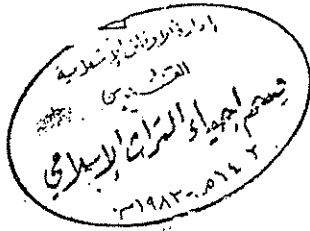 إدارة الاوقاف الإسلامية
القدس
قسم إحياء التراث الإسلامي
١٤٠٢ هـ - ١٩٨٢ م